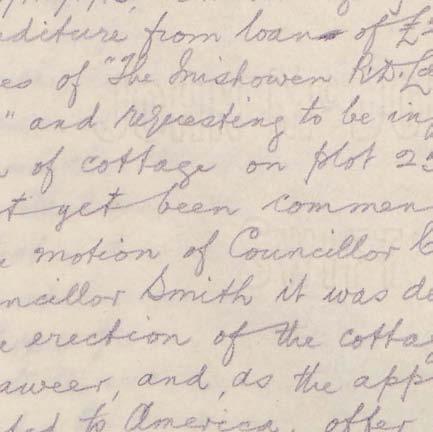 enditure from loan of £
es of "The Inishowen R.D.
" and requesting to be in
of cottage on plot 25
t yet been commen
motion of Councillor C
ncillor Smith it was de
e erection of the cottag
aweer, and, as the app
ded to America, offer